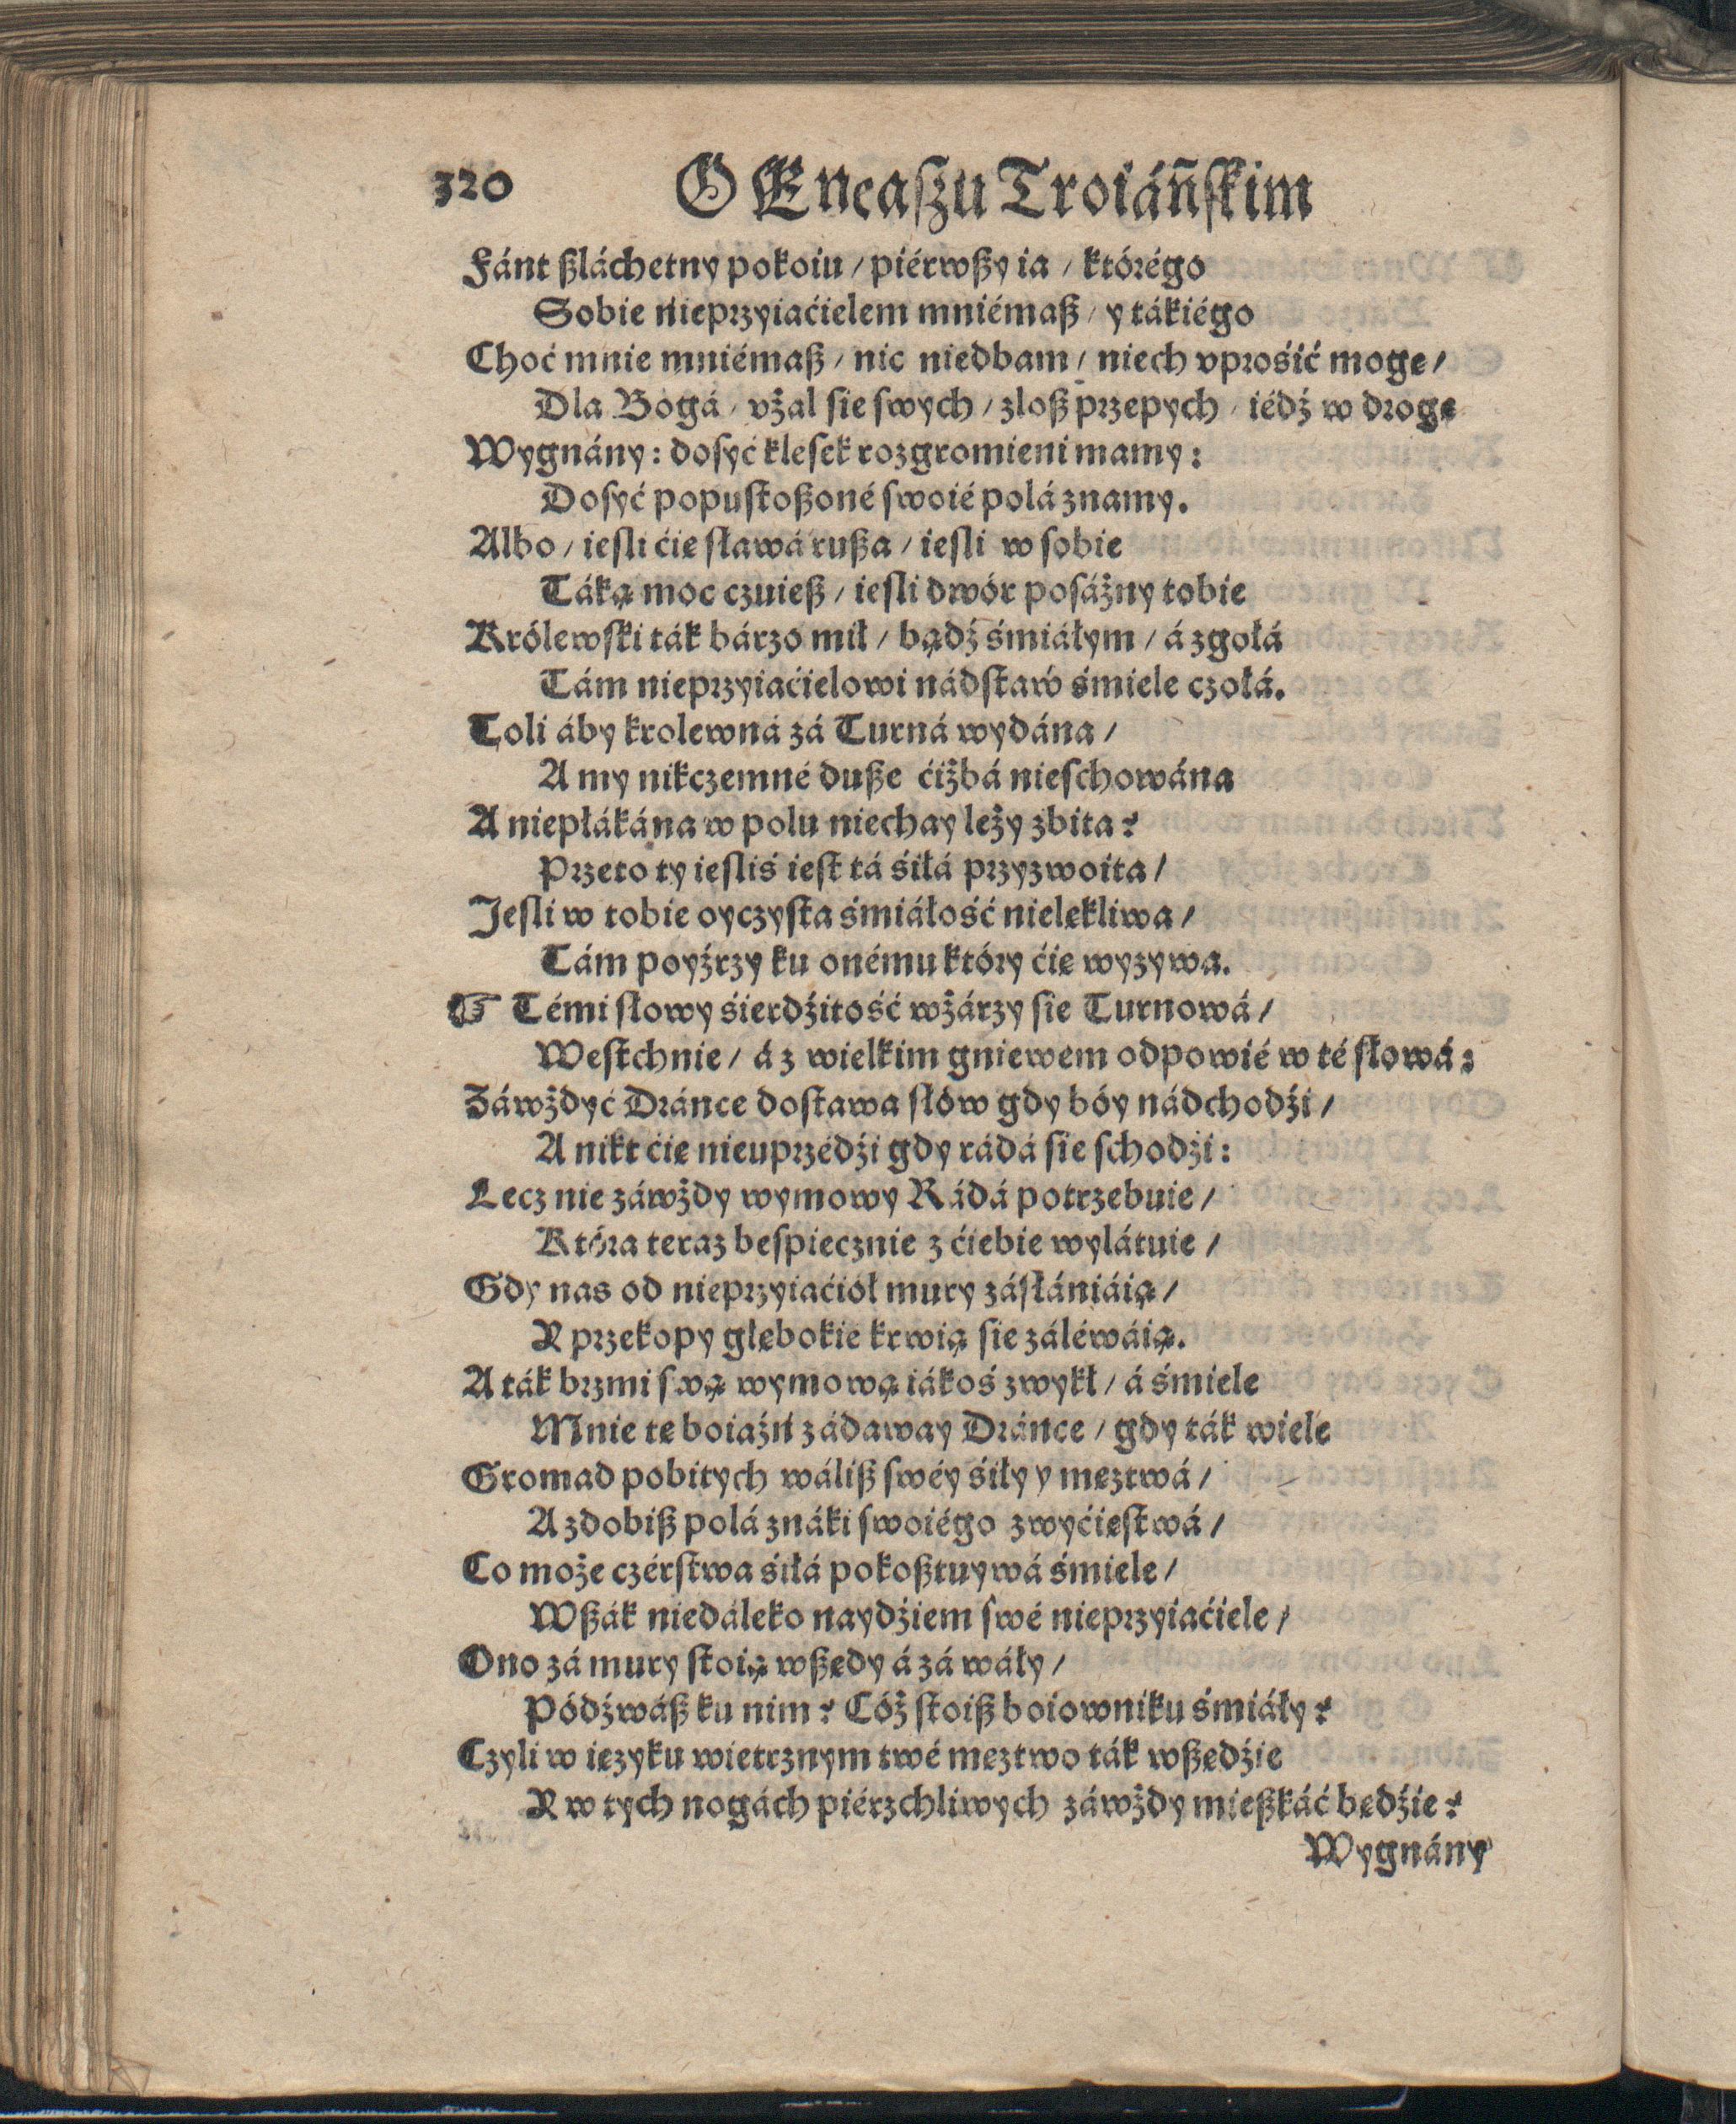 320 O Eneaszu Troiáńskim
Fánt szláchetny pokoiu / piérwszy ia / którégo
Sobie nieprzyiaćielem mniémasz / y tákiégo
Choć mnie mniémasz / nic niedbam / niech vprośić mogę /
Dla Bogá / vżal sie swych / złosz przepych / iédź w drogę
Wygnány: dosyć klęsek rozgromieni mamy:
Dosyć popustoszoné swoié polá znamy.
Albo / iesli ćię sławá rusza / iesli w sobie
Táką moc czuiesz / iesli dwór posáżny tobie
Królewski ták bárzo mił / bądź śmiáłym / á zgołá
Tám nieprzyiaćielowi nádstaẃ śmiele czołá.
Toli áby krolewná zá Turná wydána /
A my nikczemné dusze ćiżbá nieschowána
A niepłákána w polu niechay leży zbita?
Przeto ty iesliś iest tá śiłá przyzwoita /
Jesli w tobie oyczysta śmiáłość nielękliwa /
Tám poyźrzy ku onému który ćię wyzywa.
☞ Témi słowy śierdźitość wżárzy sie Turnowá /
Westchnie / á z wielkim gniewem odpowié w té słowá:
Záwżdyć Dránce dostawa słów gdy bóy nádchodźi /
A nikt ćię nieuprzédźi gdy rádá sie schodźi:
Lecz nie záwżdy wymowy Rádá potrzebuie /
Która teraz bespiecznie z ćiebie wylátuie /
Gdy nas od nieprzyiaćiół mury zásłániáią /
Y przekopy głębokie krwią sie záléwáią.
A ták brzmi swą wymową iákoś zwykł / á śmiele
Mnie tę boiaźń zádaway Dránce / gdy ták wiele
Gromad pobitych wálisz swéy śiły y męztwá /
A zdobisz polá znáki swoiégo zwyćięstwá /
Co może czérstwa śiłá pokosztuywá śmiele /
Wszák niedáleko naydźiem swé nieprzyiaćiele /
Ono zá mury stoią wszędy á zá wáły /
Pódźwász ku nim? Cóż stoisz boiowniku śmiáły?
Czyli w ięzyku wietrznym twé męztwo ták wszędźie
Y w tych nogách piérzchliwych záwżdy mieszkáć będźie?
Wygnány